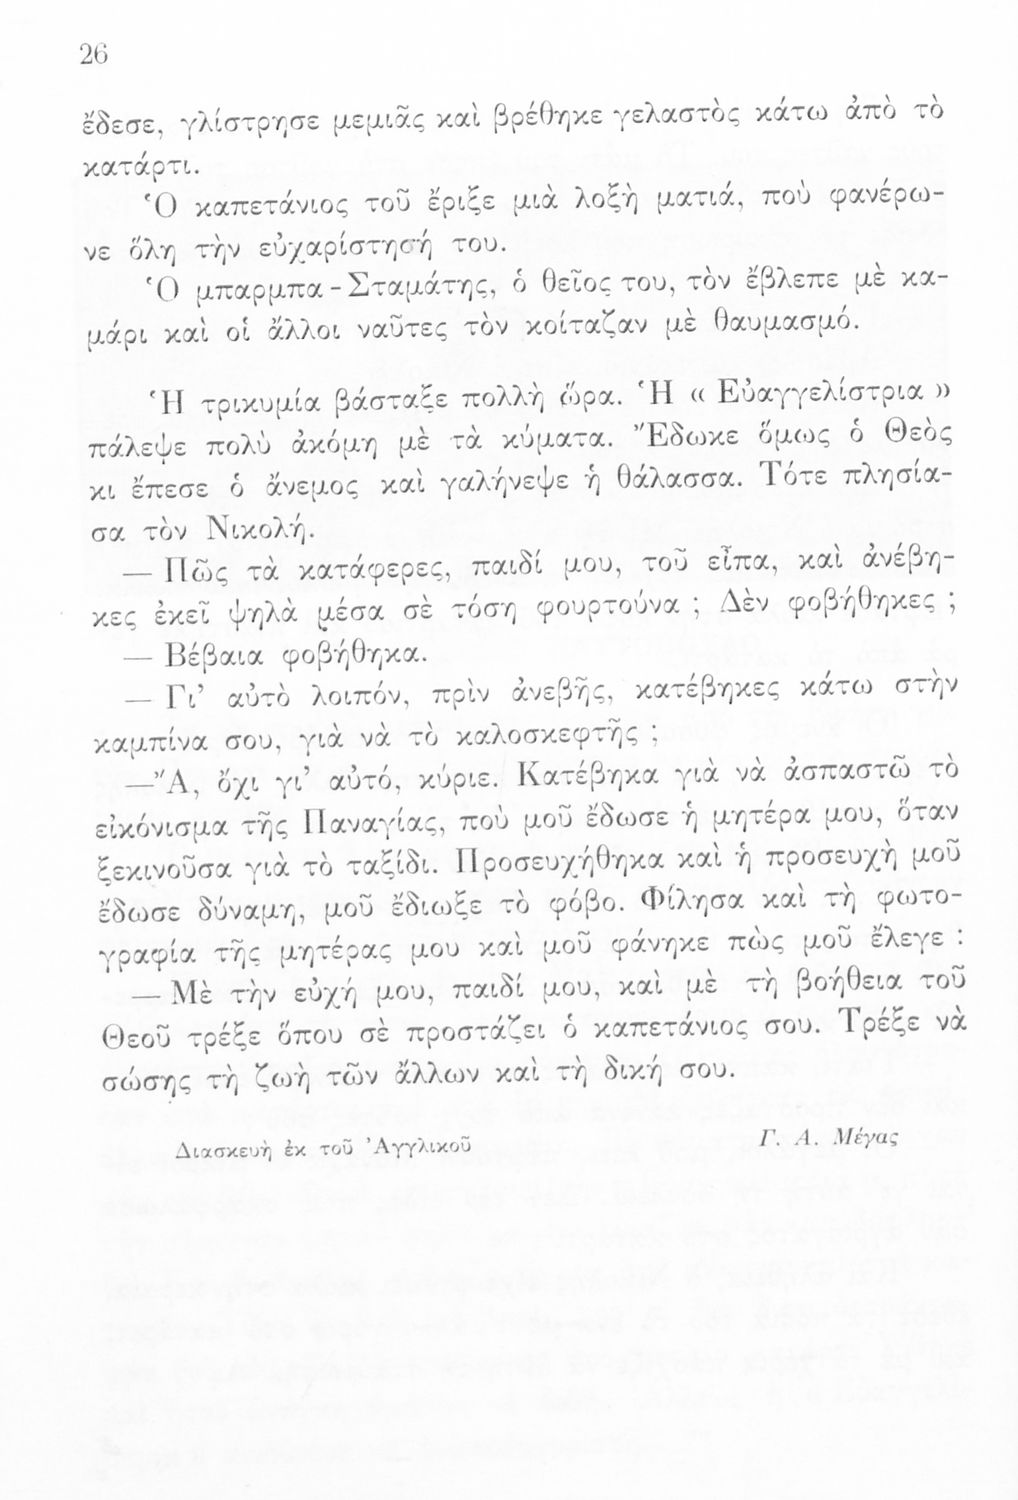 26
ἔδεσε, γλίστρησε μεμιᾶς καὶ βρέθηκε γελαστὸς κάτω ἀπὸ τὸ
κατάρτι.
Ὁ καπετάνιος τοῦ ἔριξε μιὰ λοξὴ ματιά, ποὺ φανέρω-
νε ὅλη τὴν εὐχαρίστησή του.
Ὁ μπαρμπα-Σταμάτης, ὁ θεῖος του, τὸν ἔβλεπε μὲ κα-
μάρι καὶ οἱ ἄλλοι ναῦτες τὸν κοίταζαν μὲ θαυμασμό.
Ἡ τρικυμία βάσταξε πολλὴ ὥρα. Ἡ « Εὐαγγελίστρια »
πάλεψε πολὺ ἀκόμη μὲ τὰ κύματα. Ἔδωκε ὅμως ὁ Θεὸς
κι ἔπεσε ὁ ἄνεμος καὶ γαλήνεψε ἡ θάλασσα. Τότε πλησία-
σα τὸν Νικολή.
— Πῶς τὰ κατάφερες, παιδί μου, τοῦ εἶπα, καὶ ἀνέβη-
κες ἐκεῖ ψηλὰ μέσα σὲ τόση φουρτούνα ; Δὲν φοβήθηκες ;
— Βέβαια φοβήθηκα.
— Γι’ αὐτὸ λοιπόν, πρὶν ἀνεβῆς, κατέβηκες κάτω στὴν
καμπίνα σου, γιὰ νὰ τὸ καλοσκεφτῆς ;
— Ἄ, ὄχι γι’ αὐτό, κύριε. Κατέβηκα γιὰ νὰ ἀσπαστῶ τὸ
εἰκόνισμα τῆς Παναγίας, ποὺ μοῦ ἔδωσε ἡ μητέρα μου, ὅταν
ξεκινοῦσα γιὰ τὸ ταξίδι. Προσευχήθηκα καὶ ἡ προσευχὴ μοῦ
ἔδωσε δύναμη, μοῦ ἔδιωξε τὸ φόβο. Φίλησα καὶ τὴ φωτο-
γραφία τῆς μητέρας μου καὶ μοῦ φάνηκε πὼς μοῦ ἔλεγε :
— Μὲ τὴν εὐχή μου, παιδί μου, καὶ μὲ τὴ βοήθεια τοῦ
Θεοῦ τρέξε ὅπου σὲ προστάζει ὁ καπετάνιος σου. Τρέξε νὰ
σώσης τὴ ζωὴ τῶν ἄλλων καὶ τὴ δική σου.
Διασκευὴ ἐκ τοῦ Ἀγγλικοῦ Γ. Α. Μέγας